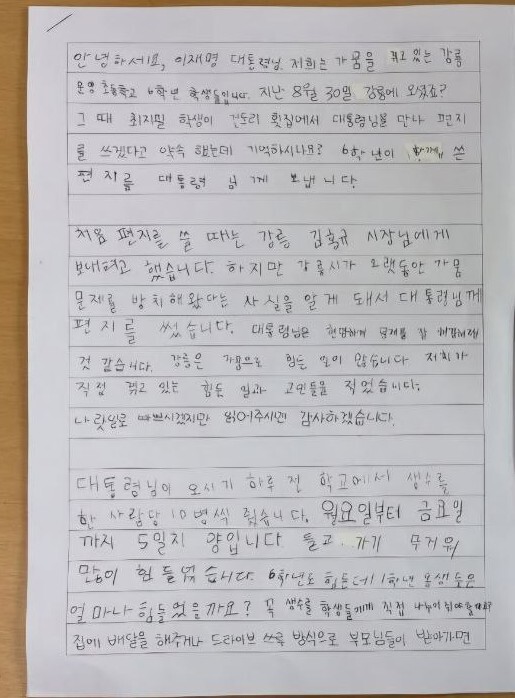 안녕하세요, 이재명 대통령님. 저희는 가뭄을 겪고 있는 강릉
운양초등학교 6학년 학생들입니다. 지난 8월 30일 강릉에 오셨죠?
그 때 최지밀 학생이 건도리 횟집에서 대통령님을 만나 편지
를 쓰겠다고 약속 했는데 기억하시나요? 6학년이 함께 쓴
편지를 대통령 님께 보냅니다.
처음 편지를 쓸 때는 강릉 김홍규 시장님에게
보내려고 했습니다. 하지만 강릉시가 오랫동안 가뭄
문제를 방치해왔다는 사실을 알게 돼서 대통령님께
편지를 썼습니다. 대통령님은 현명하게 문제를 잘
것 같습니다. 강릉은 가뭄으로 힘든 일이 많습니다 저희가
직접 겪고 있는 힘든 일과 고민들을 적었습니다.
나랏일로 바쁘시겠지만 읽어주시면 감사하겠습니다.
대통령님이 오시기 하루 전 학교에서 생수를
한 사람당 10병씩 줬습니다. 월요일부터 금요일
까지 5일치 양입니다. 들고 가기 무거워
많이 힘들었습니다. 6학년도 힘든데 1학년 동생들은
얼마나 힘들었을까요? 꼭 생수를 학생들에게 직접 나누어줘야 할까요?
집에 배달을 해주거나 드라이브 쓰루 방식으로 부모님들이 받아가면